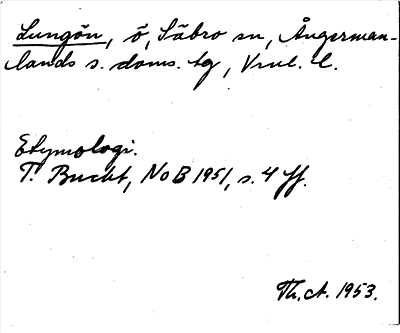 Lungön, ö, Säbro sn, Ångerman-
lands s. doms. tg, Vnl. l.
Etymologi.
T. Bucht, NoB 1951, s. 4 ff.
Th. A. 1953.